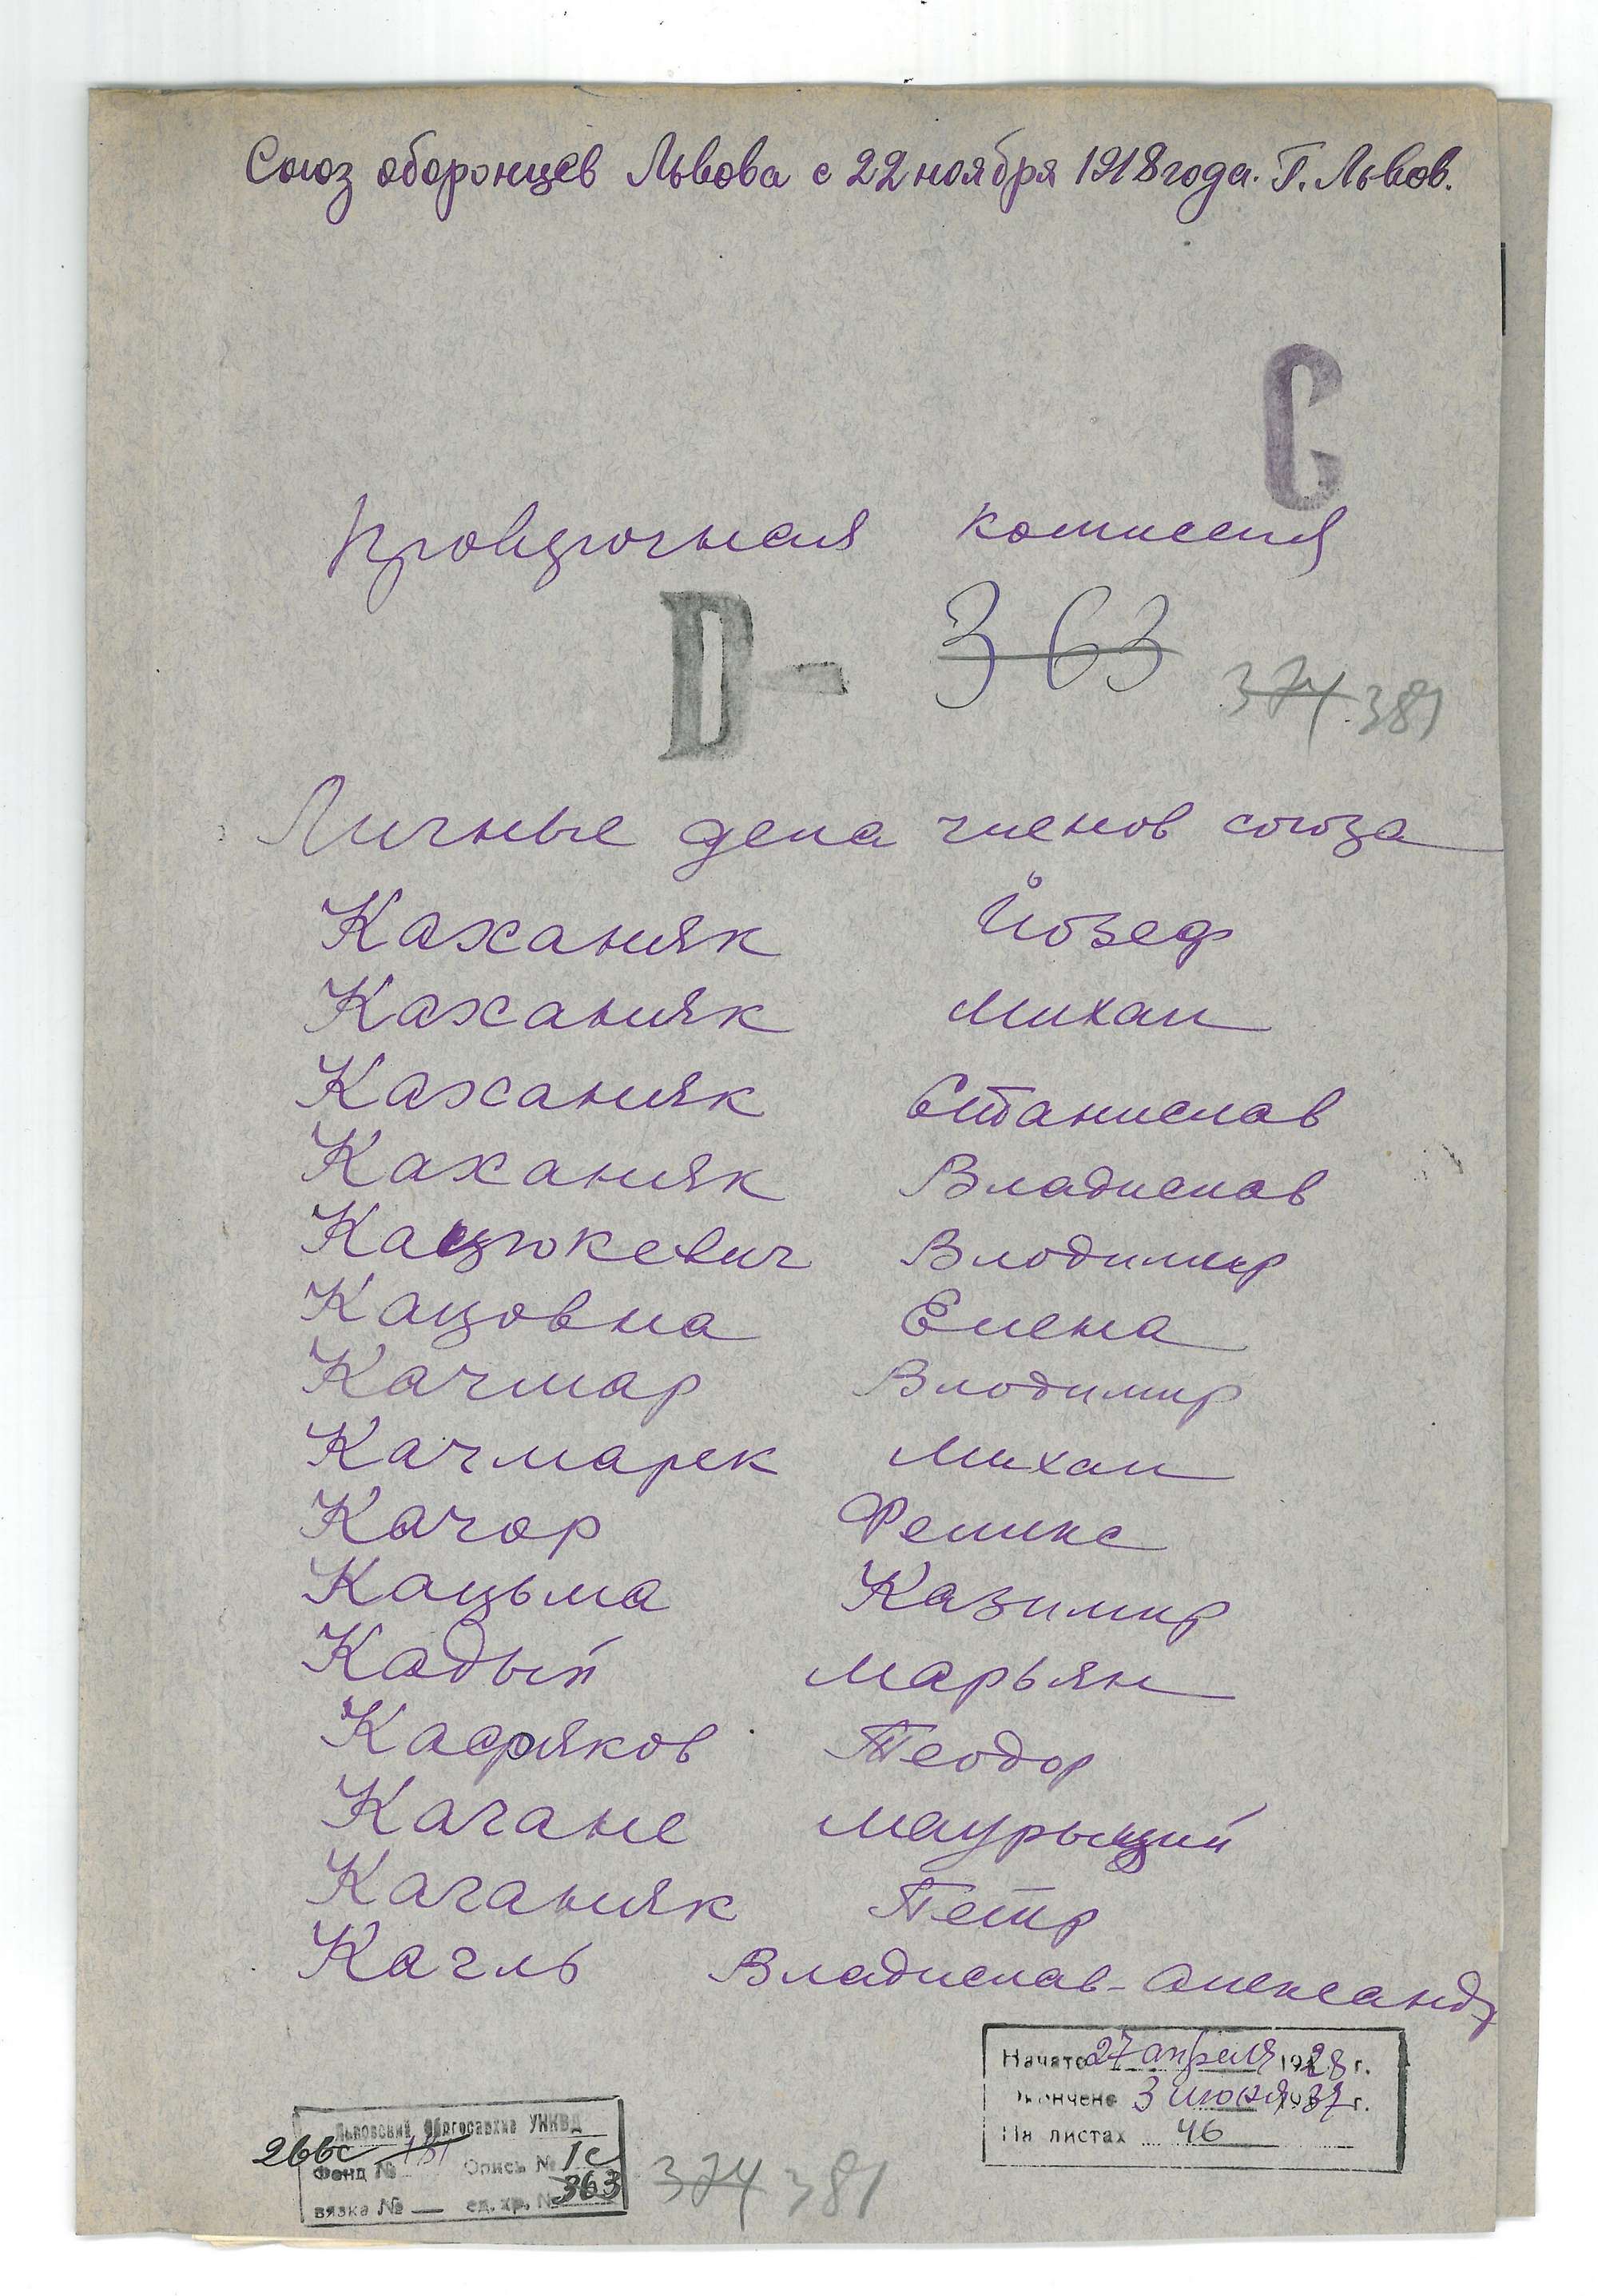 Союз оборонцев Львова с 22 ноября 1918 года. Г. Львов.
С
комиссия
D-
363
374 381
Личные дела членов союза
Каханяк Йозеф
Каханяк Михал
Каханяк Станислав
Каханяк Владислав
Кацюкевич Влодимир
Кацовна Елена
Качмар Влодимир
Качмарек Михал
Качор Феликс
Кацьма Казимир
Кадый Марьян
Теодор
Кагане Маурыций
Каганяк Петр
Кагль Владислав-Александр
Начато 27 апреля 1928 г.
Окончено 3 июня 1937 г.
На листах 46
Львовский Облгосархив УНКВД
266с 181
Фонд № Опись № 1с
вязка № — ед. хр. № 363
374 381